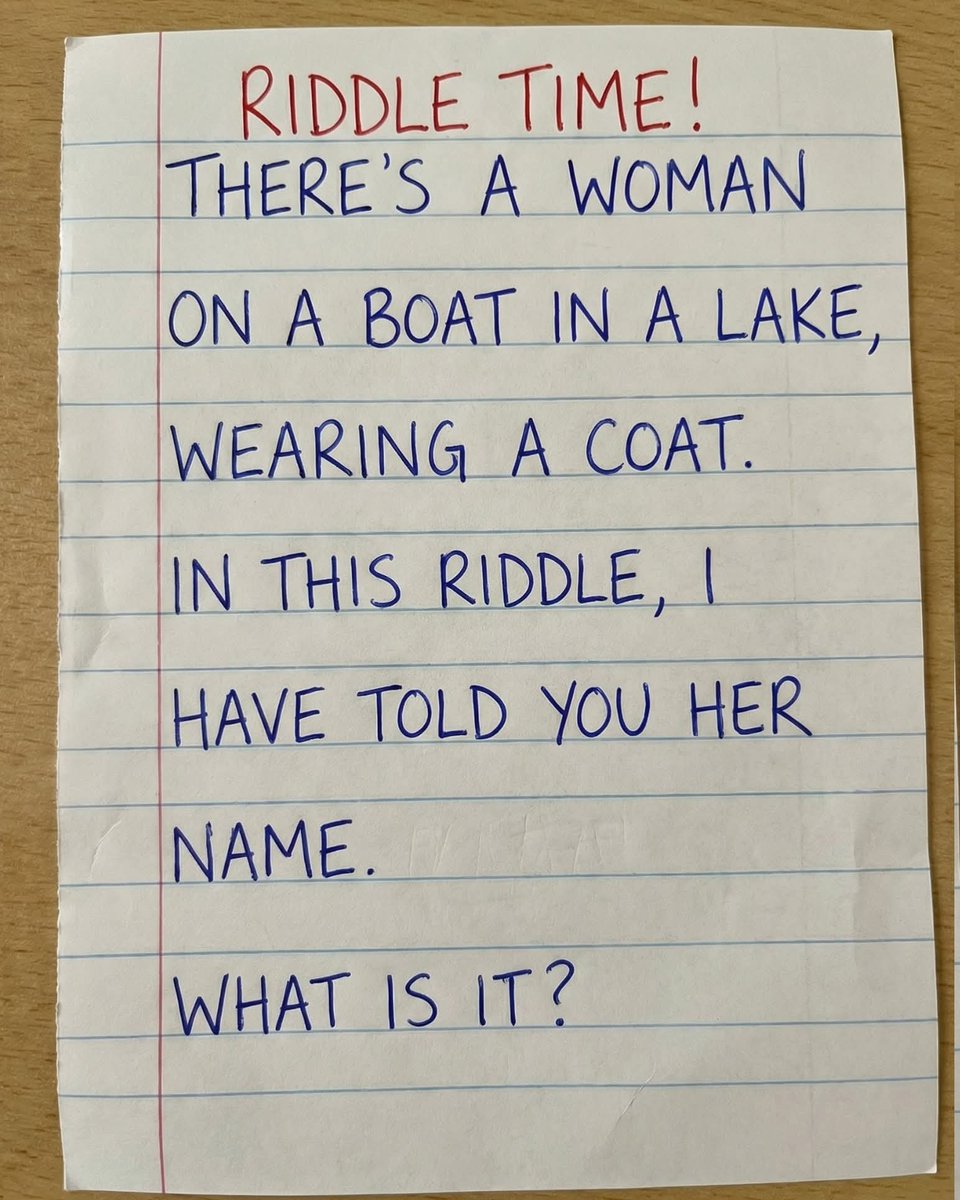 RIDDLE TIME!
THERE'S A WOMAN
ON A BOAT IN A LAKE,
WEARING A COAT.
IN THIS RIDDLE, I
HAVE TOLD YOU HER
NAME.
WHAT IS IT?